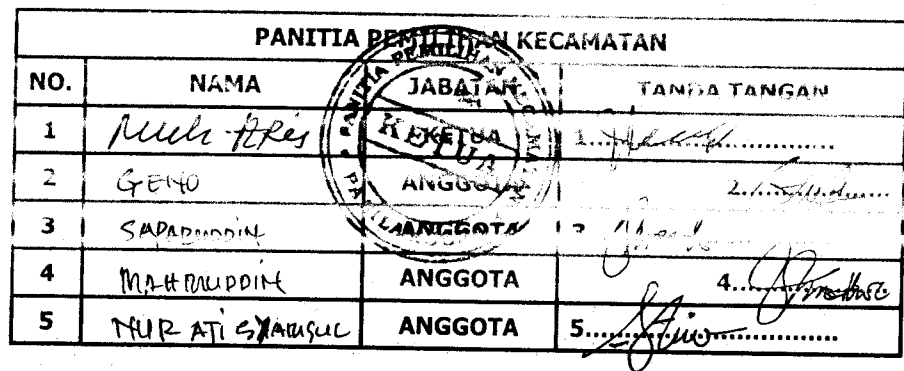 PANITIA PEMILIHAN KECAMATAN
NO. NAMA JABATAN TANDA TANGAN
1 Much Aris KETUA 1.
2 GENO ANGGOTA 2.
3 SAPARUDDIN ANGGOTA 3
4 MAHMUDDIN ANGGOTA 4.
5 NUR ATI ANGGOTA 5.
PANITIA PEMILIHAN
KETUA